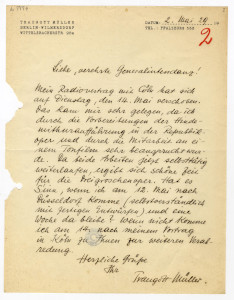 TRAUGOTT MÜLLER
BERLIN-WILMERSDORF
WITTELSBACHERSTR 26A
DATUM: 2. Mai 29.
TEL.: PFALZBURG 350
2
Liebe, verehrte Generalintendanz!
Mein Radiovortrag in Cöln hat sich
auf Dienstag, den 14. Mai verschoben.
Das kam mir sehr gelegen, da ich
durch die Vorbereitungen der
uraufführung in der Republik-
oper und durch die Mitarbeit an einem
sehr beansprucht wur-
de. Da beide Arbeiten jetzt selbsttätig
weiterlaufen, ergibt sich schöne Zeit
für die Dreigroschenoper. Hat es
Sinn, wenn ich am 12. Mai nach
Düsseldorf komme (selbstverständlich
mit fertigen Entwürfen) und eine
Woche da bleibe? Wenn nicht komme
ich am 14. nach meinem Vortrag
in Köln zu Ihnen zur weiteren Verab-
redung.
Herzliche Grüße
Ihr
Traugott Müller.